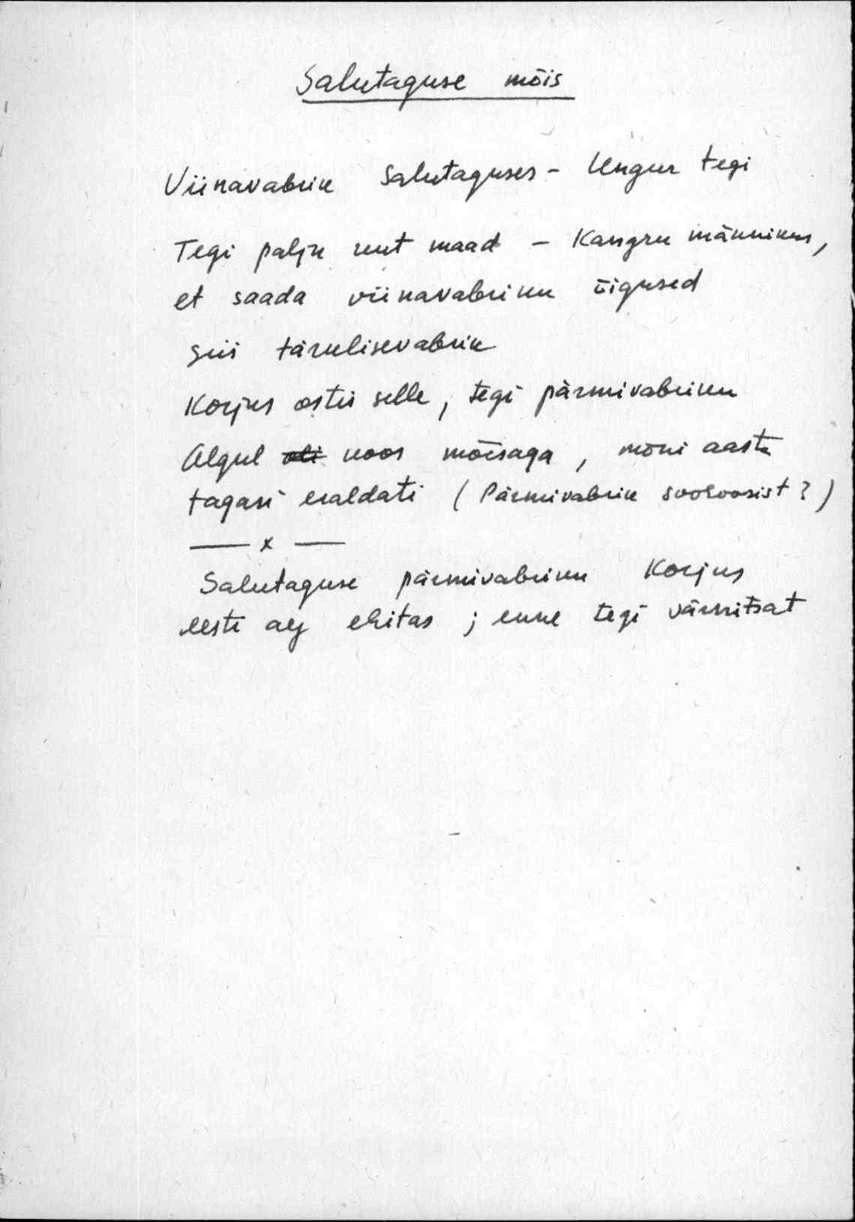 Salutaguse mõis
Viinavabrik Salutaguses – Ungur tegi
Tegi palju uut maad – Kangru männikus,
et saada viinavabriku õigused
siis tärklisevabrik
Korjus ostis selle, tegi pärmivabriku
Algul oli koos mõisaga, mõni aasta
tagasi eraldati (Pärmivabrik sovhoosist?)
— x —
Salutaguse pärmivabriku Korjus
eesti aj ehitas; enne tegi värnitsat